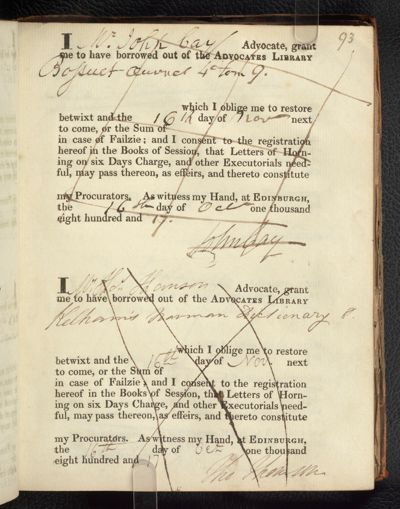 93
I Mr John Cay Advocate, grant
me to have borrowed out of the ADVOCATES LIBRARY
Bossuet 4to tom 9.
which I oblige me to restore
betwixt and the 16th day of Nov next
to come, or the Sum of
in case of Failzie; and I consent to the registration
hereof in the Books of Session, that Letters of Horn-
ing on six Days Charge, and other Executorials need-
ful, may pass thereon, as effeirs, and thereto constitute
my Procurators. As witness my Hand, at EDINBURGH,
the 16th day of Oct one thousand
eight hundred and 17.
John Cay
I Mr Tho Thomson Advocate, grant
me to have borrowed out of the ADVOCATES LIBRARY
Kelham's Norman Dictionary 8.
which I oblige me to restore
betwixt and the 16th day of Nov. next
to come, or the Sum of
in case of Failzie; and I consent to the registration
hereof in the Books of Session, that Letters of Horn-
ing on six Days Charge, and other Executorials need-
ful, may pass thereon, as effeirs, and thereto constitute
my Procurators. As witness my Hand, at EDINBURGH,
the 16th day of Oct one thousand
eight hundred and 17
Tho Thomson